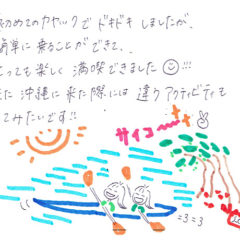 初めてのカヤックでドキドキしましたが、
簡単に乗ることができて、、
とっても楽しく満喫できました☺!!!
また沖縄に来た際には違うアクティビティも
してみたいです!!
サイコー
=3 =3